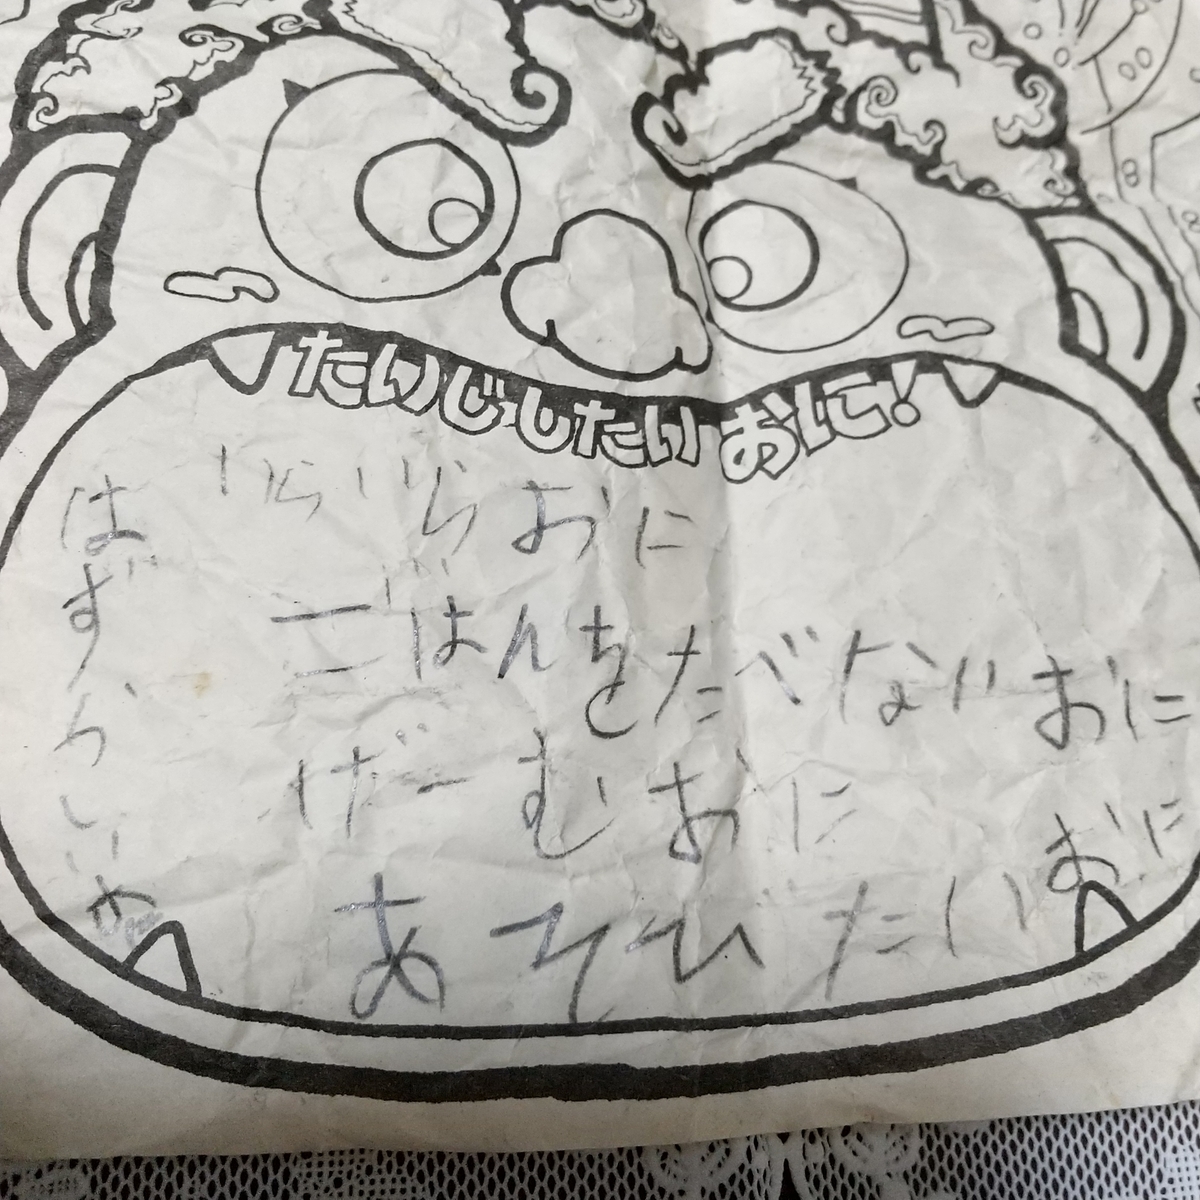 たいじしたいおに!
いらいらおに
ごはんをたべないおに
げーむおに
あそびたいおに
はずかしいや